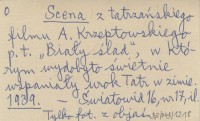 Scena z tatrzańskiego
filmu A. Krzeptowskiego
p.t. „Biały ślad", w któ-
rym wydobyto świetnie
wspaniały urok Tatr w zimie.
1939. – Światowid 16, nr 17, il.
Tylko fot. z objaśn.